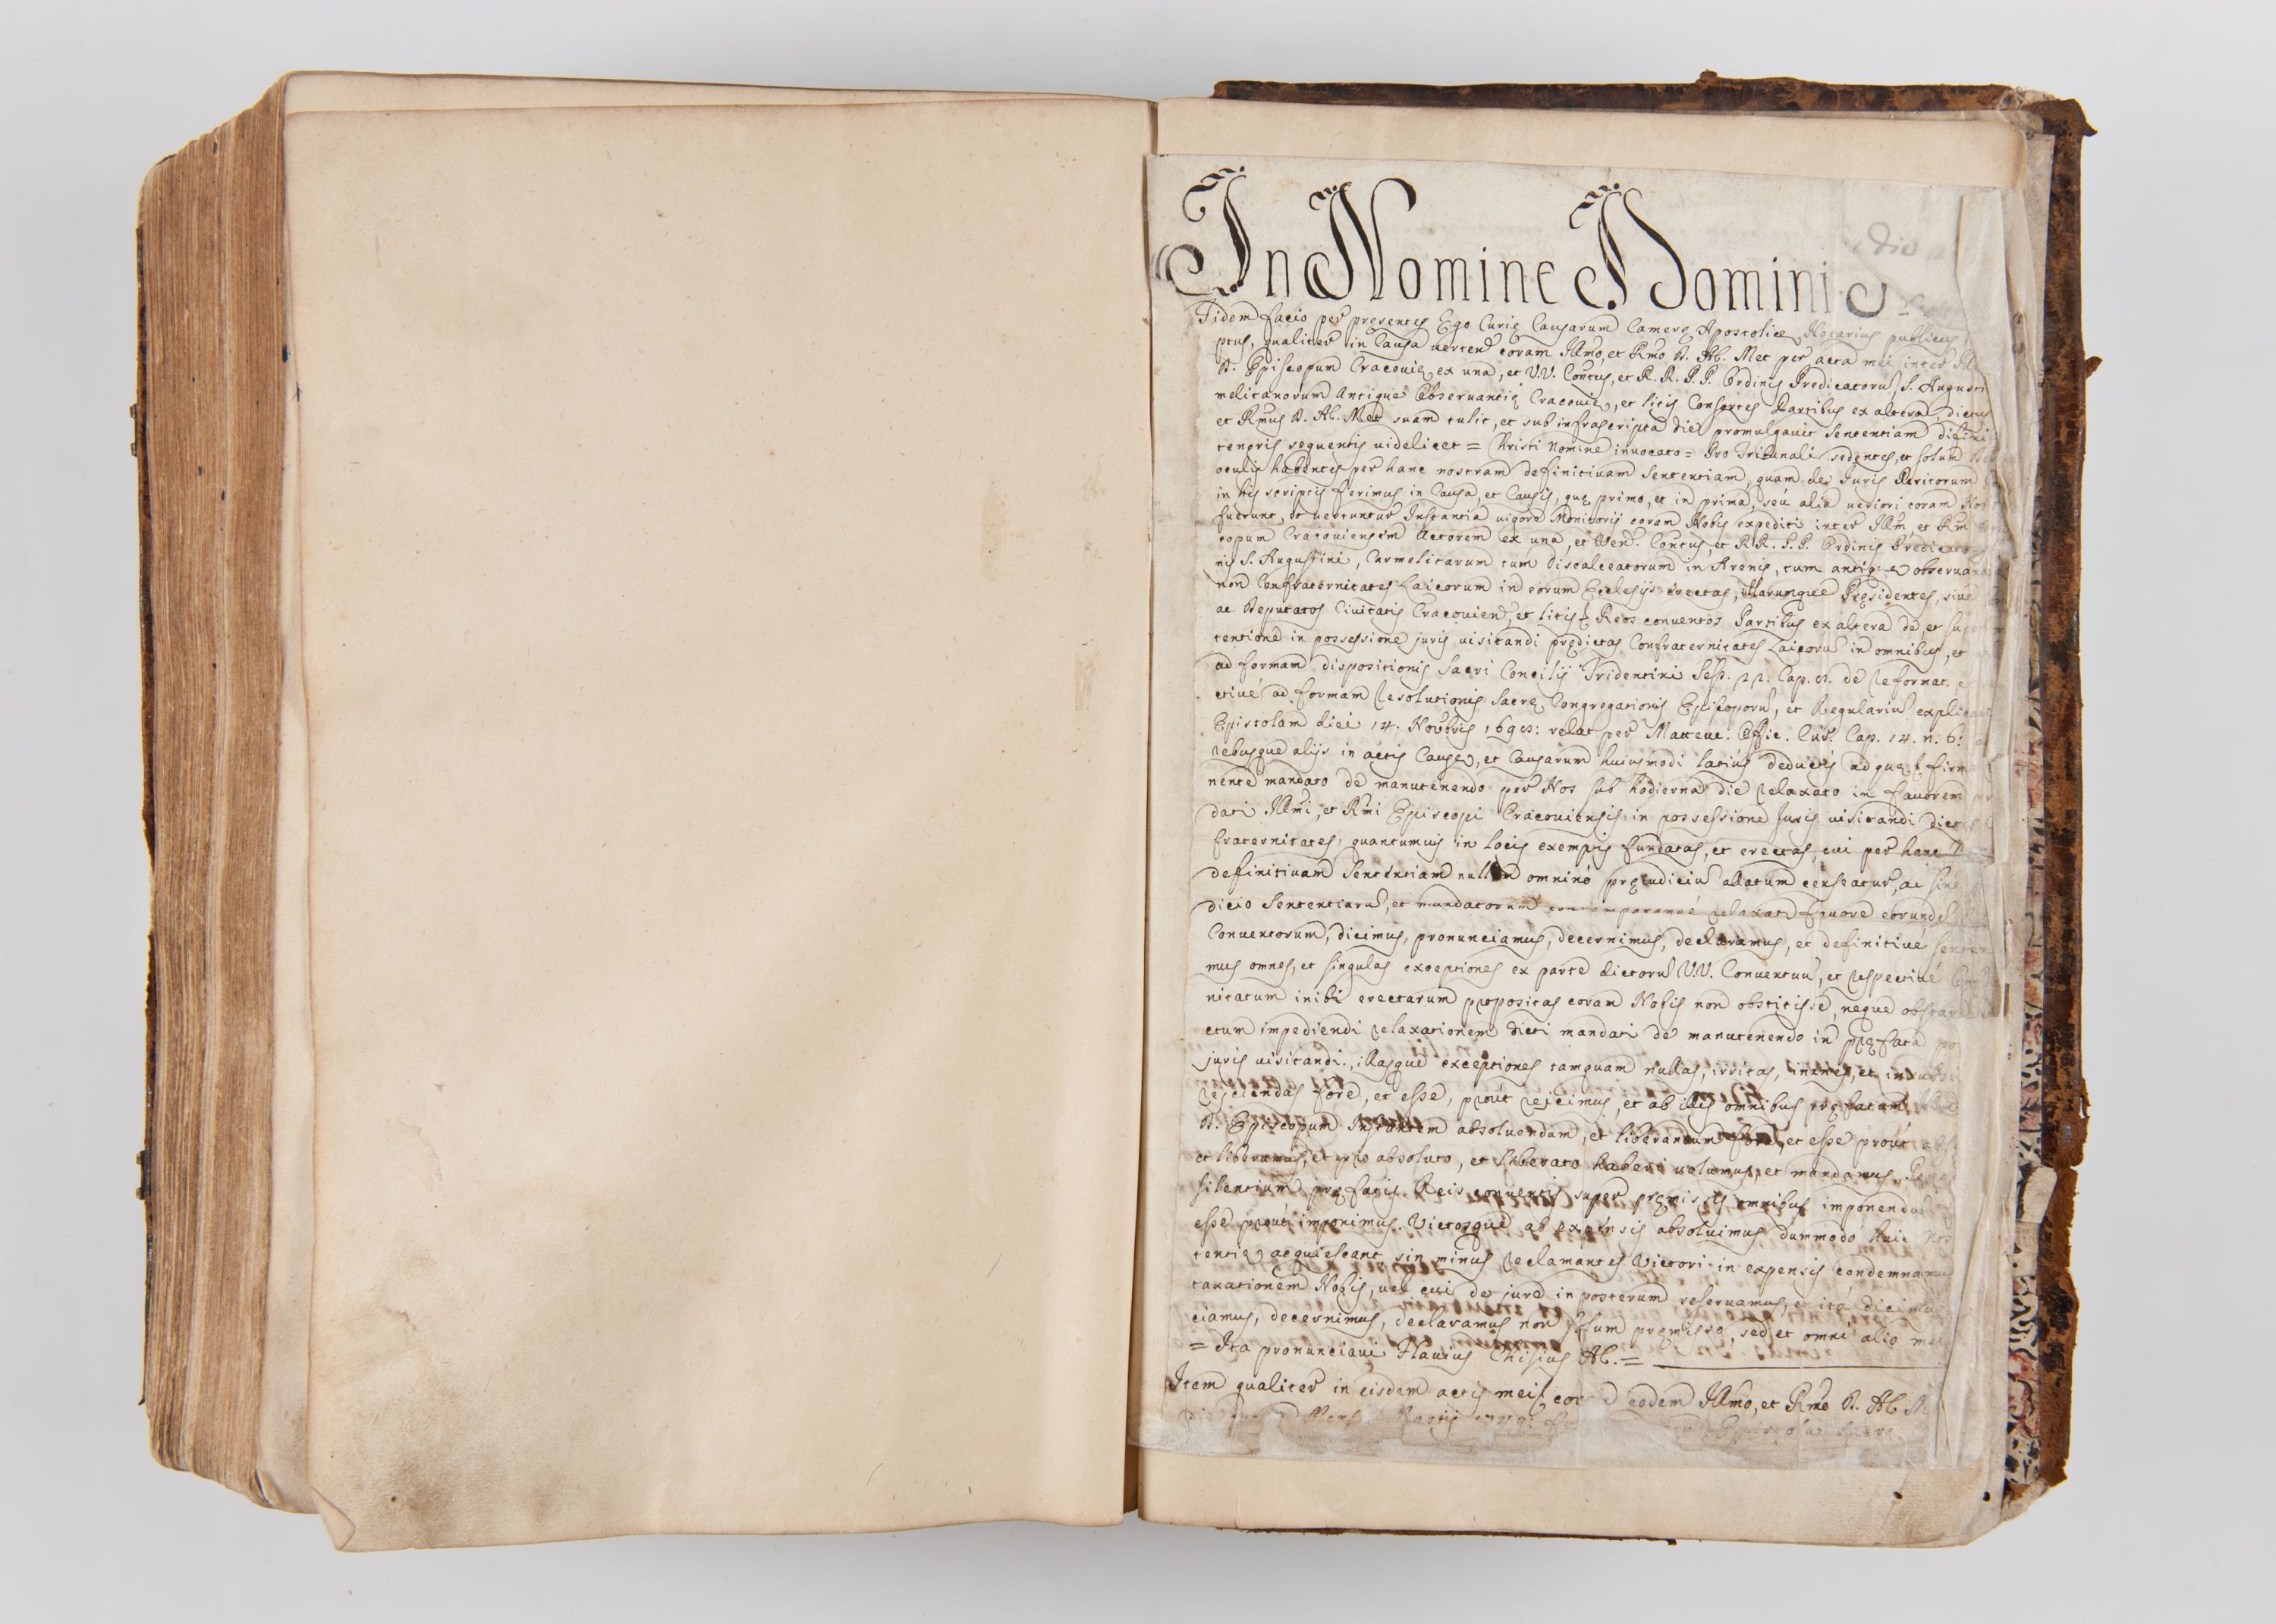 In Nomine Domini
Fidem facio per presentes Ego Curię Causarum Camerę Apostolicę Notarius publicus
ptus, qualiter in Causa verten coram Illmo, et Rmo D. AC. Met per acta mei inter Ill
D. Episcopum Cracovię ex una, et V.V. Contus, et R. R. P. P. Ordinis Predicatorū, S. Augusti
melitanorum Antiquę Observantię Cracovię, et litis Consortes Partibus ex altera, dictus
et Rmus D. AC. Met suam tulit, et sub infrascripta die promulgavit Sententiam difini
tenoris sequentis videlicet = Christi Nomine invocato = Pro Tribunali sedentes, et solum De
oculis habentes per hanc nostram definitivam Sententiam, quam de Juris Peritorum
in his scriptis ferimus in Causa, et Causis, quę primo, et in prima, seú alia veriori coram No
fuerunt, et vertuntur Instantia vigore Monitorij coram Nobis expediti inter Illm, et Rm
copum Cracoviensem Actorem ex una, et Ven. Contus, et RR. P.P. Ordinis Predicato
nis S. Augustini, Carmelitarum tum discalceatorum in Arenis, tum antiquę observan
non Confraternitates Laicorum in eorum Ecclesijs erectas, illarumque Pręsidentes, sive
ac Deputatos Civitatis Cracovien, et litis Reos conventos Partibus ex altera de, et sup
tentione in possessione juris visitandi prędictas Confraternitates Laicorū in omnibus, et
ad formam dispositionis Sacri Concilij Tridentini Sess. 22. Cap. 8. de reformat. e
ctivé ad formam resolutionis Sacrę Congregationis Episcoporū, et Regulariū explica
Epistolam diei 14. Novbris relat per Matteuc. Offic. Cur. Cap. 14. n. 6.
rebusque alijs in actis Causę, et Causarum huiusmodi latius deductis ad quę firm
nente mandato de manutenendo per Nos sub hodierna die relaxato in favorem
dati Illmi, et Rmi Episcopi Cracoviensis in possessione juris visitandi dictas
fraternitates, quantumvis in locis exemptis fundatas, et erectas, cui per hanc
definitivam Sententiam nullum omninó pręjudiciū allatum censeatur, ac sine
dicio Sententiarū, et mandatorum contemporaneé relaxat favore eorunde
Conventorum, dicimus, pronunciamus, decernimus, declaramus, et definitivé senten
mus omnes, et singulas exceptiones ex parte dictorū V.V. Conventuū, et respectivé
nitatum inibi erectarum propositas coram Nobis non obstitisse, neque obstare
ctum impediendi relaxationem dicti mandati de manutenendo in pręfata po
juris visitandi, illasque exceptiones tamquam nullas, irritas, inanes, et
rejiciendas fore, et esse, prout rejicimus, et ab illis omnibus pręfatam
D. Episcopum Instantem absolvendum, et liberandum fore, et esse prout
et liberamus, et pro absoluto, et liberato haberi volumus, et mandamus
silentium pręfatis Reis conventis super pręmissis omnibus imponendū
esse prout imponimus. Victosque ab expensis absolvimus dummodó huic nos
tentię acquiescant sin minus reclamantes Victori in expensis condemnamus
taxationem Nobis, vel cui de jure in posterum reservamus, et ita dicimus
ciamus, decernimus, declaramus non solum pręmisso, sed et omni alio
= Ita pronunciavi Flavius Chisius AC. =
Item qualiter in eisdem actis meis eodem Illmo, et Rmo D. AC M